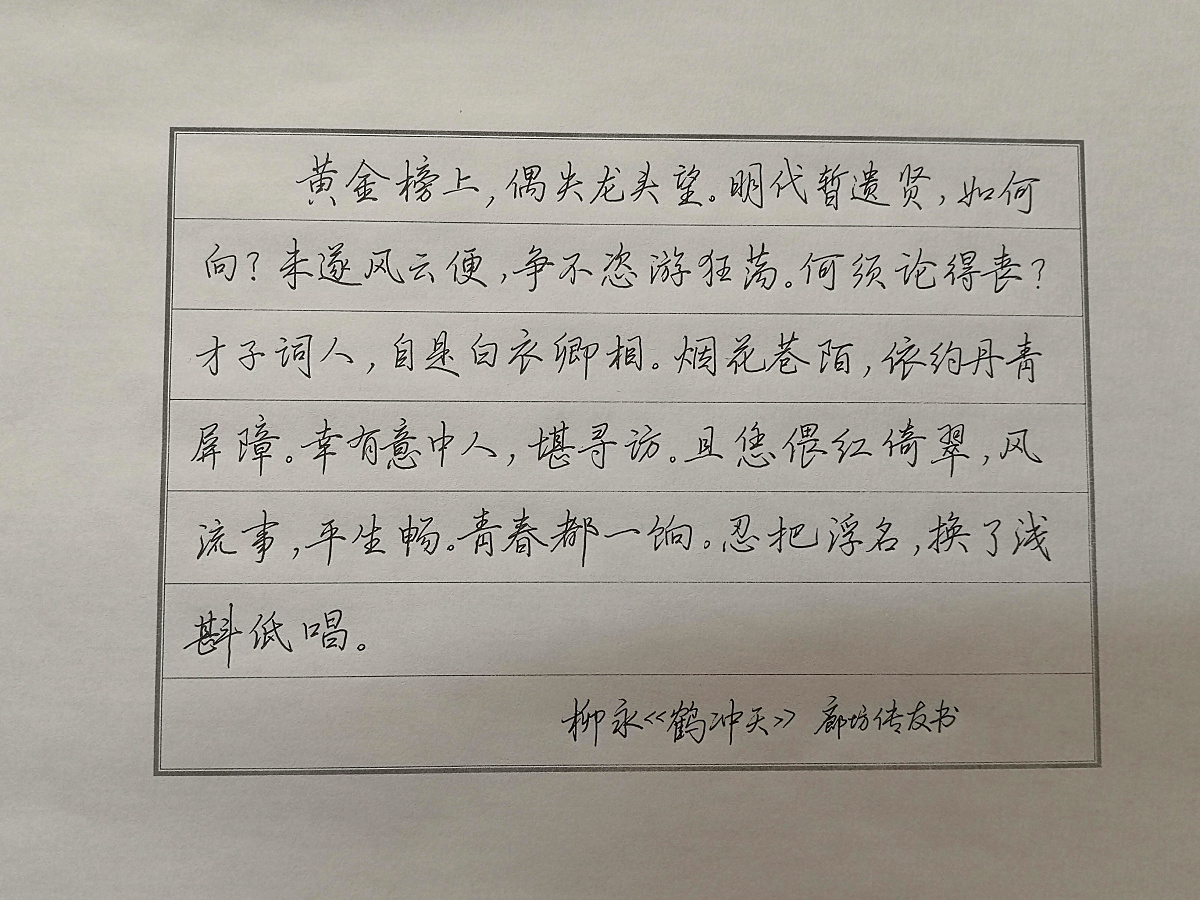 黄金榜上,偶失龙头望。明代暂遗贤,如何
向?未遂风云便,争不恣游狂荡。何须论得丧?
才子词人,自是白衣卿相。烟花巷陌,依约丹青
屏障。幸有意中人,堪寻访。且恁偎红倚翠,风
流事,平生畅。青春都一饷。忍把浮名,换了浅
斟低唱。
柳永<<鹤冲天>> 廊坊传友书